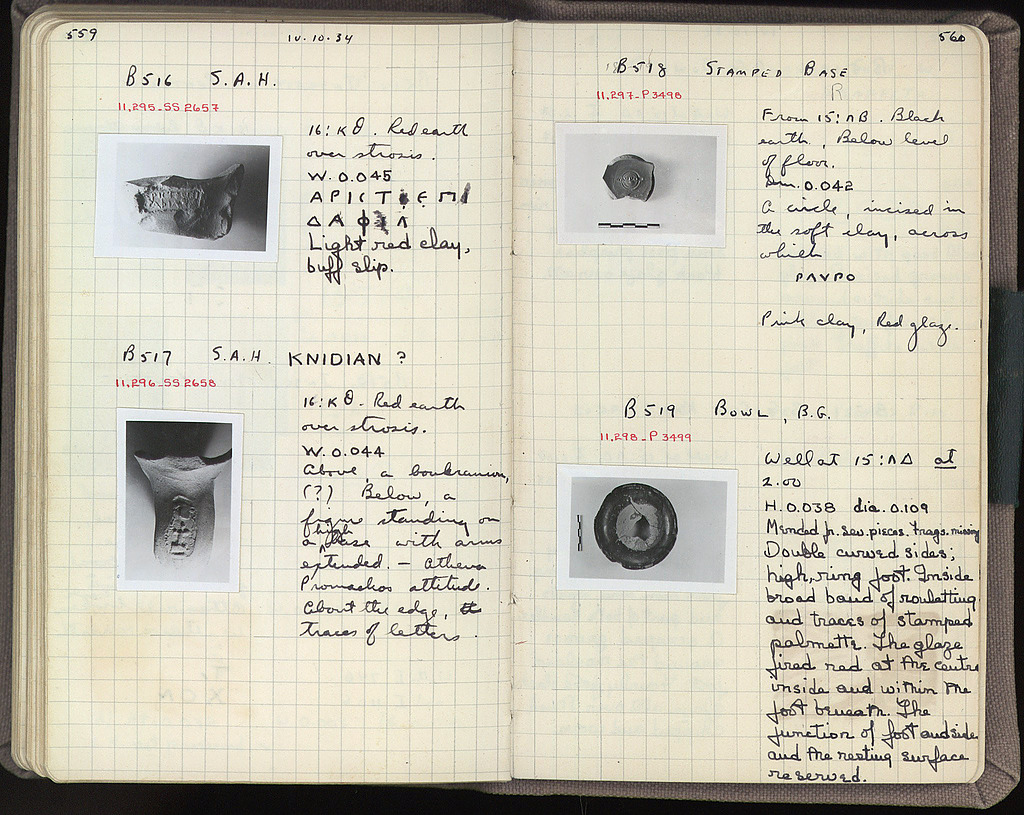 559
10.10.34
B516 S.A.H.
11,295-SS 2657
16:ΚΘ. Red earth
over strosis.
W. 0.045
ΑΡΙCΤ Ε Π
ΔΑΦ Λ
Light red clay,
buff slip.
B517 S.A.H. KNIDIAN ?
11,296-SS 2658
16:ΚΘ. Red earth
over strosis.
W. 0.044
Above, a boukranion,
(?) Below, a
figure standing on
a high base with arms
extended. – Athena
Promachos attitude.
About the edge,
traces of letters.
560
B518 STAMPED BASE
R
11,297-P 3498
From 15:ΛΒ. Black
earth, Below level
of floor.
Dm. 0.042
A circle, incised in
the soft clay, across
which
ΡΑVΡΟ
Pink clay, Red glaze.
B519 BOWL, B.G.
11,298-P 3499
Well at 15:ΛΔ at
2.00
H. 0.038 dia. 0.109
Mended fr. sev. pieces. frags. missing
Double curved sides;
high, ring foot. Inside
broad band of rouletting
and traces of stamped
palmette. The glaze
fired red at the centre
inside and within the
foot beneath. The
junction of foot and side
and the resting surface
reserved.